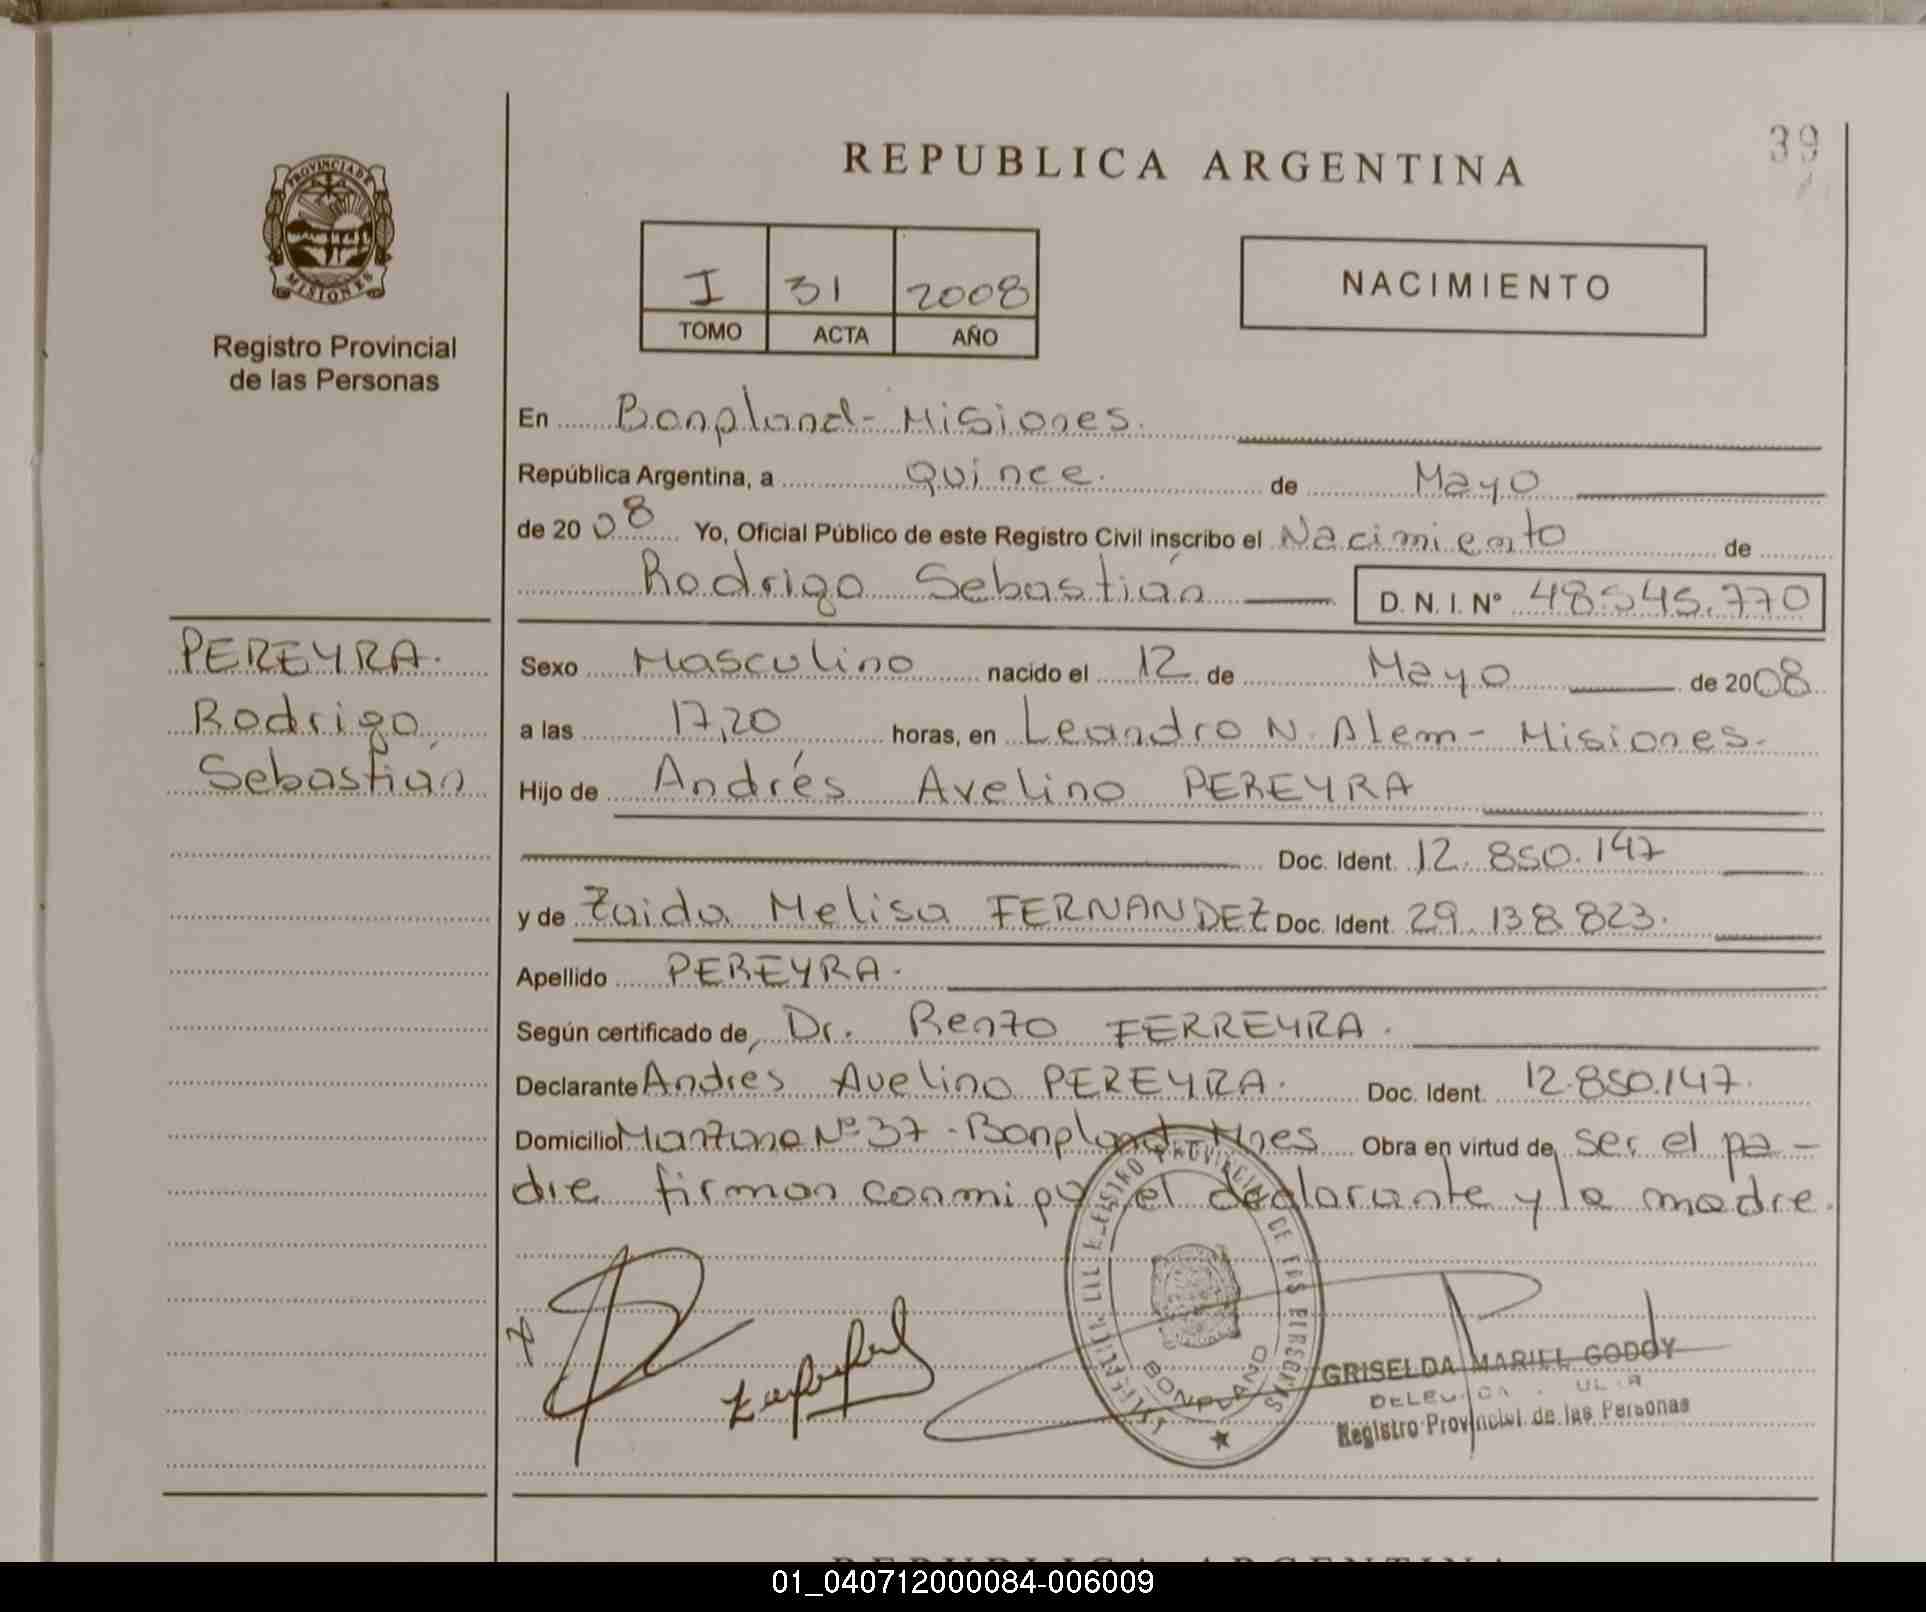 39
PROVINCIA DE
MISIONES
Registro Provincial
de las Personas
REPUBLICA ARGENTINA
I 31 2008
TOMO ACTA AÑO
NACIMIENTO
En Bonpland - Misiones.
República Argentina, a Quince. de Mayo
de 2008 Yo, Oficial Público de este Registro Civil inscribo el Nacimiento de
Rodrigo Sebastián D. N. I. Nº 48.545.770
PEREYRA.
Rodrigo
Sebastián
Sexo Masculino nacido el 12 de Mayo de 2008
a las 17,20 horas, en Leandro N. Alem - Misiones.
Hijo de Andrés Avelino PEREYRA
Doc. Ident. 12.850.147
y de Zaida Melisa FERNANDEZ Doc. Ident. 29.138.823.
Apellido PEREYRA.
Según certificado de, Dr. Renzo FERREYRA.
Declarante Andres Avelino PEREYRA. Doc. Ident. 12.850.147.
Domicilio Manzana Nº 37 - Bonpland Mnes Obra en virtud de, ser el pa-
dre firman conmigo el declarante y la madre.
PROVINCIAL DE LAS PERSONAS
BONPLAND
GRISELDA MARIEL GODOY
Registro Provincial de las Personas
REPUBLICA ARGENTINA
01_040712000084-006009